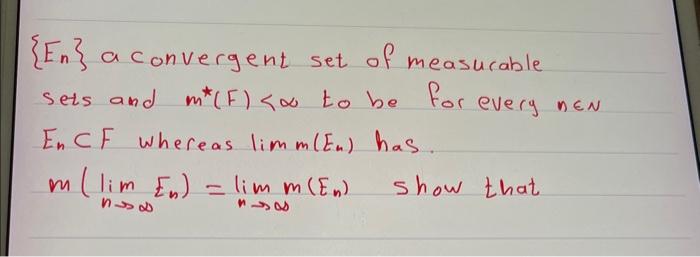 {En} a convergent set of measurable
sets and m*(F) <∞ to be for every n∈N
En⊂F whereas lim m(En) has.
m(lim n→∞ En) = lim n→∞ m(En) show that